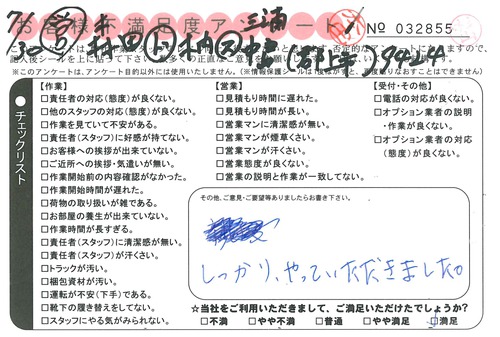 お客様不満足度アンケート
No 032855
【作業】
□責任者の対応(態度)が良くない。
□他のスタッフの対応(態度)が良くない。
□作業を見ていて不安がある。
□責任者(スタッフ)に好感が持てない。
□お客様への挨拶が出来ていない。
□ご近所への挨拶・気遣いが無い。
□作業開始前の内容確認がなかった。
□作業開始時間が遅れた。
□荷物の取り扱いが雑である。
□お部屋の養生が出来ていない。
□作業時間が長すぎる。
□責任者(スタッフ)に清潔感が無い。
□責任者(スタッフ)が汗くさい。
□トラックが汚い。
□梱包資材が汚い。
□運転が不安(下手)である。
□靴下の履き替えをしてない。
□スタッフにやる気がみられない。
【営業】
□見積もり時間に遅れた。
□見積もり時間が長い。
□営業マンに清潔感が無い。
□営業マンが煙草くさい。
□営業マンが汗くさい。
□営業態度が良くない。
□営業の説明と作業が一致してない。
【受付・その他】
□電話の対応が良くない。
□オプション業者の説明
・作業が良くない。
□オプション業者の対応
(態度)が良くない。
チェックリスト
その他、ご意見・ご要望等ありましたらお書き下さい。
しっかり、やっていただきました。
☆当社をご利用いただきまして、ご満足いただけたでしょうか?
□不満 □やや不満 □普通 □やや満足 □満足